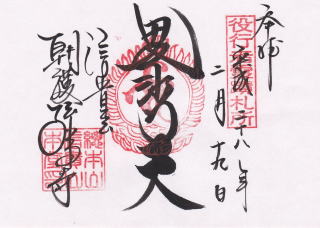 奉拝
役行者霊蹟札所
平成二十八年
二月十九日
毘沙門天
信貴山
朝護孫子寺